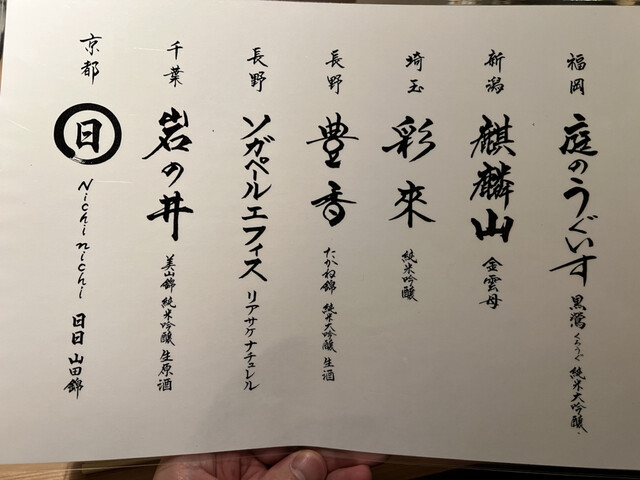 福岡 庭のうぐいす 黒鶯 くろうぐ 純米大吟醸
新潟 麒麟山 金雲母
埼玉 彩來 純米吟醸
長野 豊香 たかね錦 純米大吟醸 生酒
長野 ソガペールエフィス リアサケナチュレル
千葉 岩の井 美山錦 純米吟醸 生原酒
京都 日 Nichi nichi 日日 山田錦